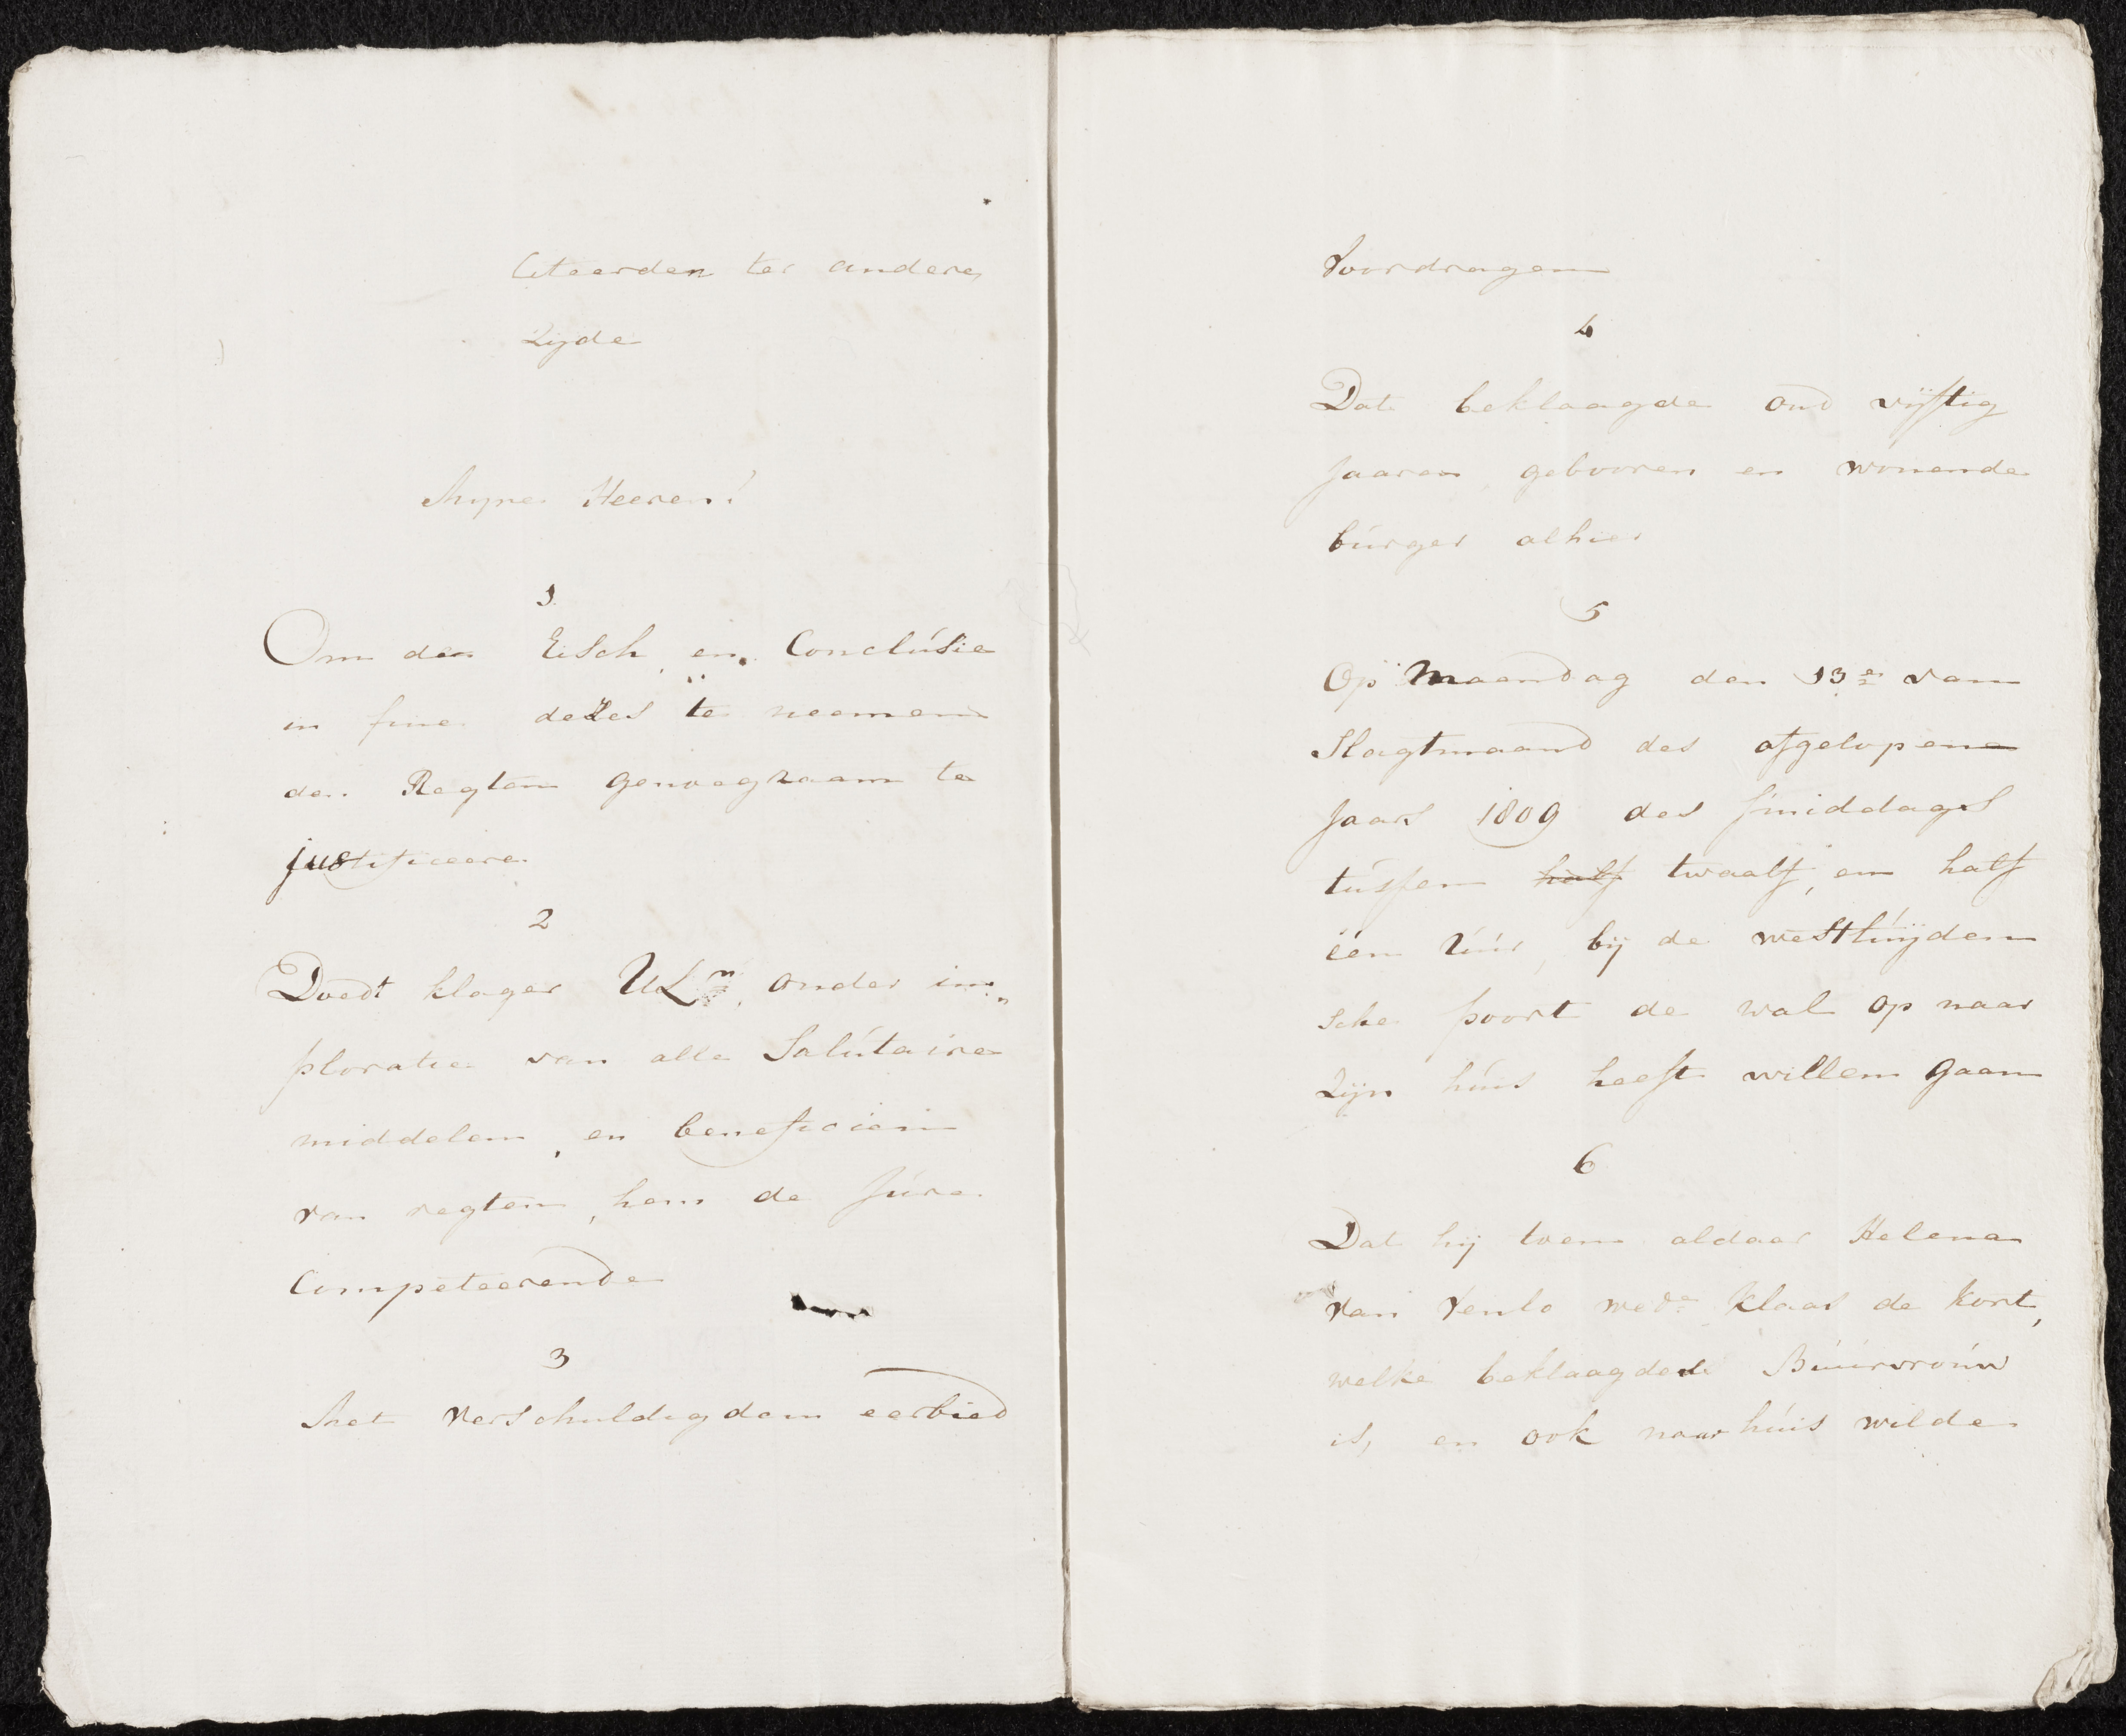 Citeerden ter andere
Zijde
Mijne Heeren!
1
Om den Eisch, en Conclúsie
in fine dezes te neemen
de Regten genoegzaam te
justificeere
2
Doedt klager UL^n, onder im„
ploratie van alle Salútaire
middelen, en beneficien
van regten, hem de júre
Competeerende
3
Met verschuldigden eerbied
Voordragen
4
Dat beklaagde oud vijftig
Jaaren, gebooren en wonende
búrger alhier
5
Op Maandag den 13^e van
Slagtmaand des afgelopene
Jaars 1809 des smiddags
tússen half twaalf, en half
één úúr, bij de westlúijden
sche poort de wal op naar
Zijn húis heeft willen gaan
6
Dat hij toen aldaar Helena
van Venlo wed^e Klaas de Kort,
welke beklaagdede Búúrvroúw
is, en ook naar húis wilde